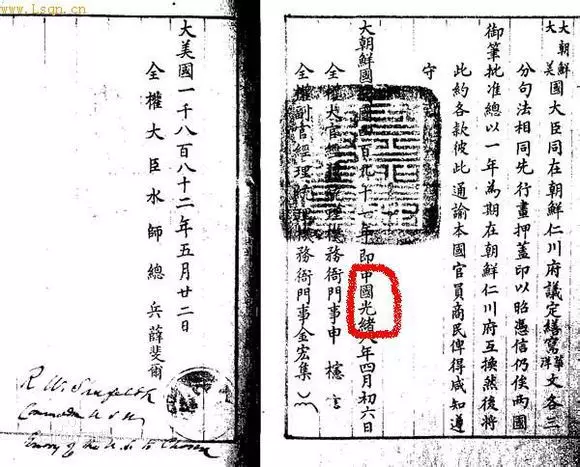 www.lsqn.cn
大朝鮮大美國大臣同在朝鮮仁川府議定繕寫華洋文各三
分句法相同先行畫押蓋印以昭憑信仍俟兩國
御筆批准總以一年為期在朝鮮仁川府互換然後將
此約各款彼此通諭本國官員商民俾得咸知遵
守
大朝鮮國開國四百九十一年即中國光緒八年四月初六日
全權大官經理統理機務衙門事申櫶
全權副官經理統理機務衙門事金宏集
大美國一千八百八十二年五月廿二日
全權大臣水師總兵薛斐爾
R. W. Shufeldt
Commodore U.S.N.
Envoy of the U.S. to Chosen